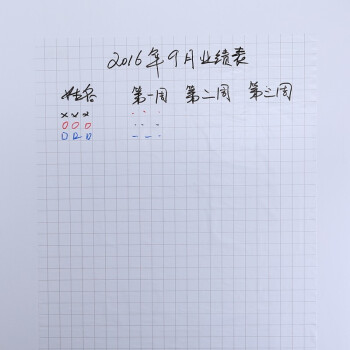 2016年9月业绩表
姓名 第一周 第二周 第三周
x x x
o o o
D D D